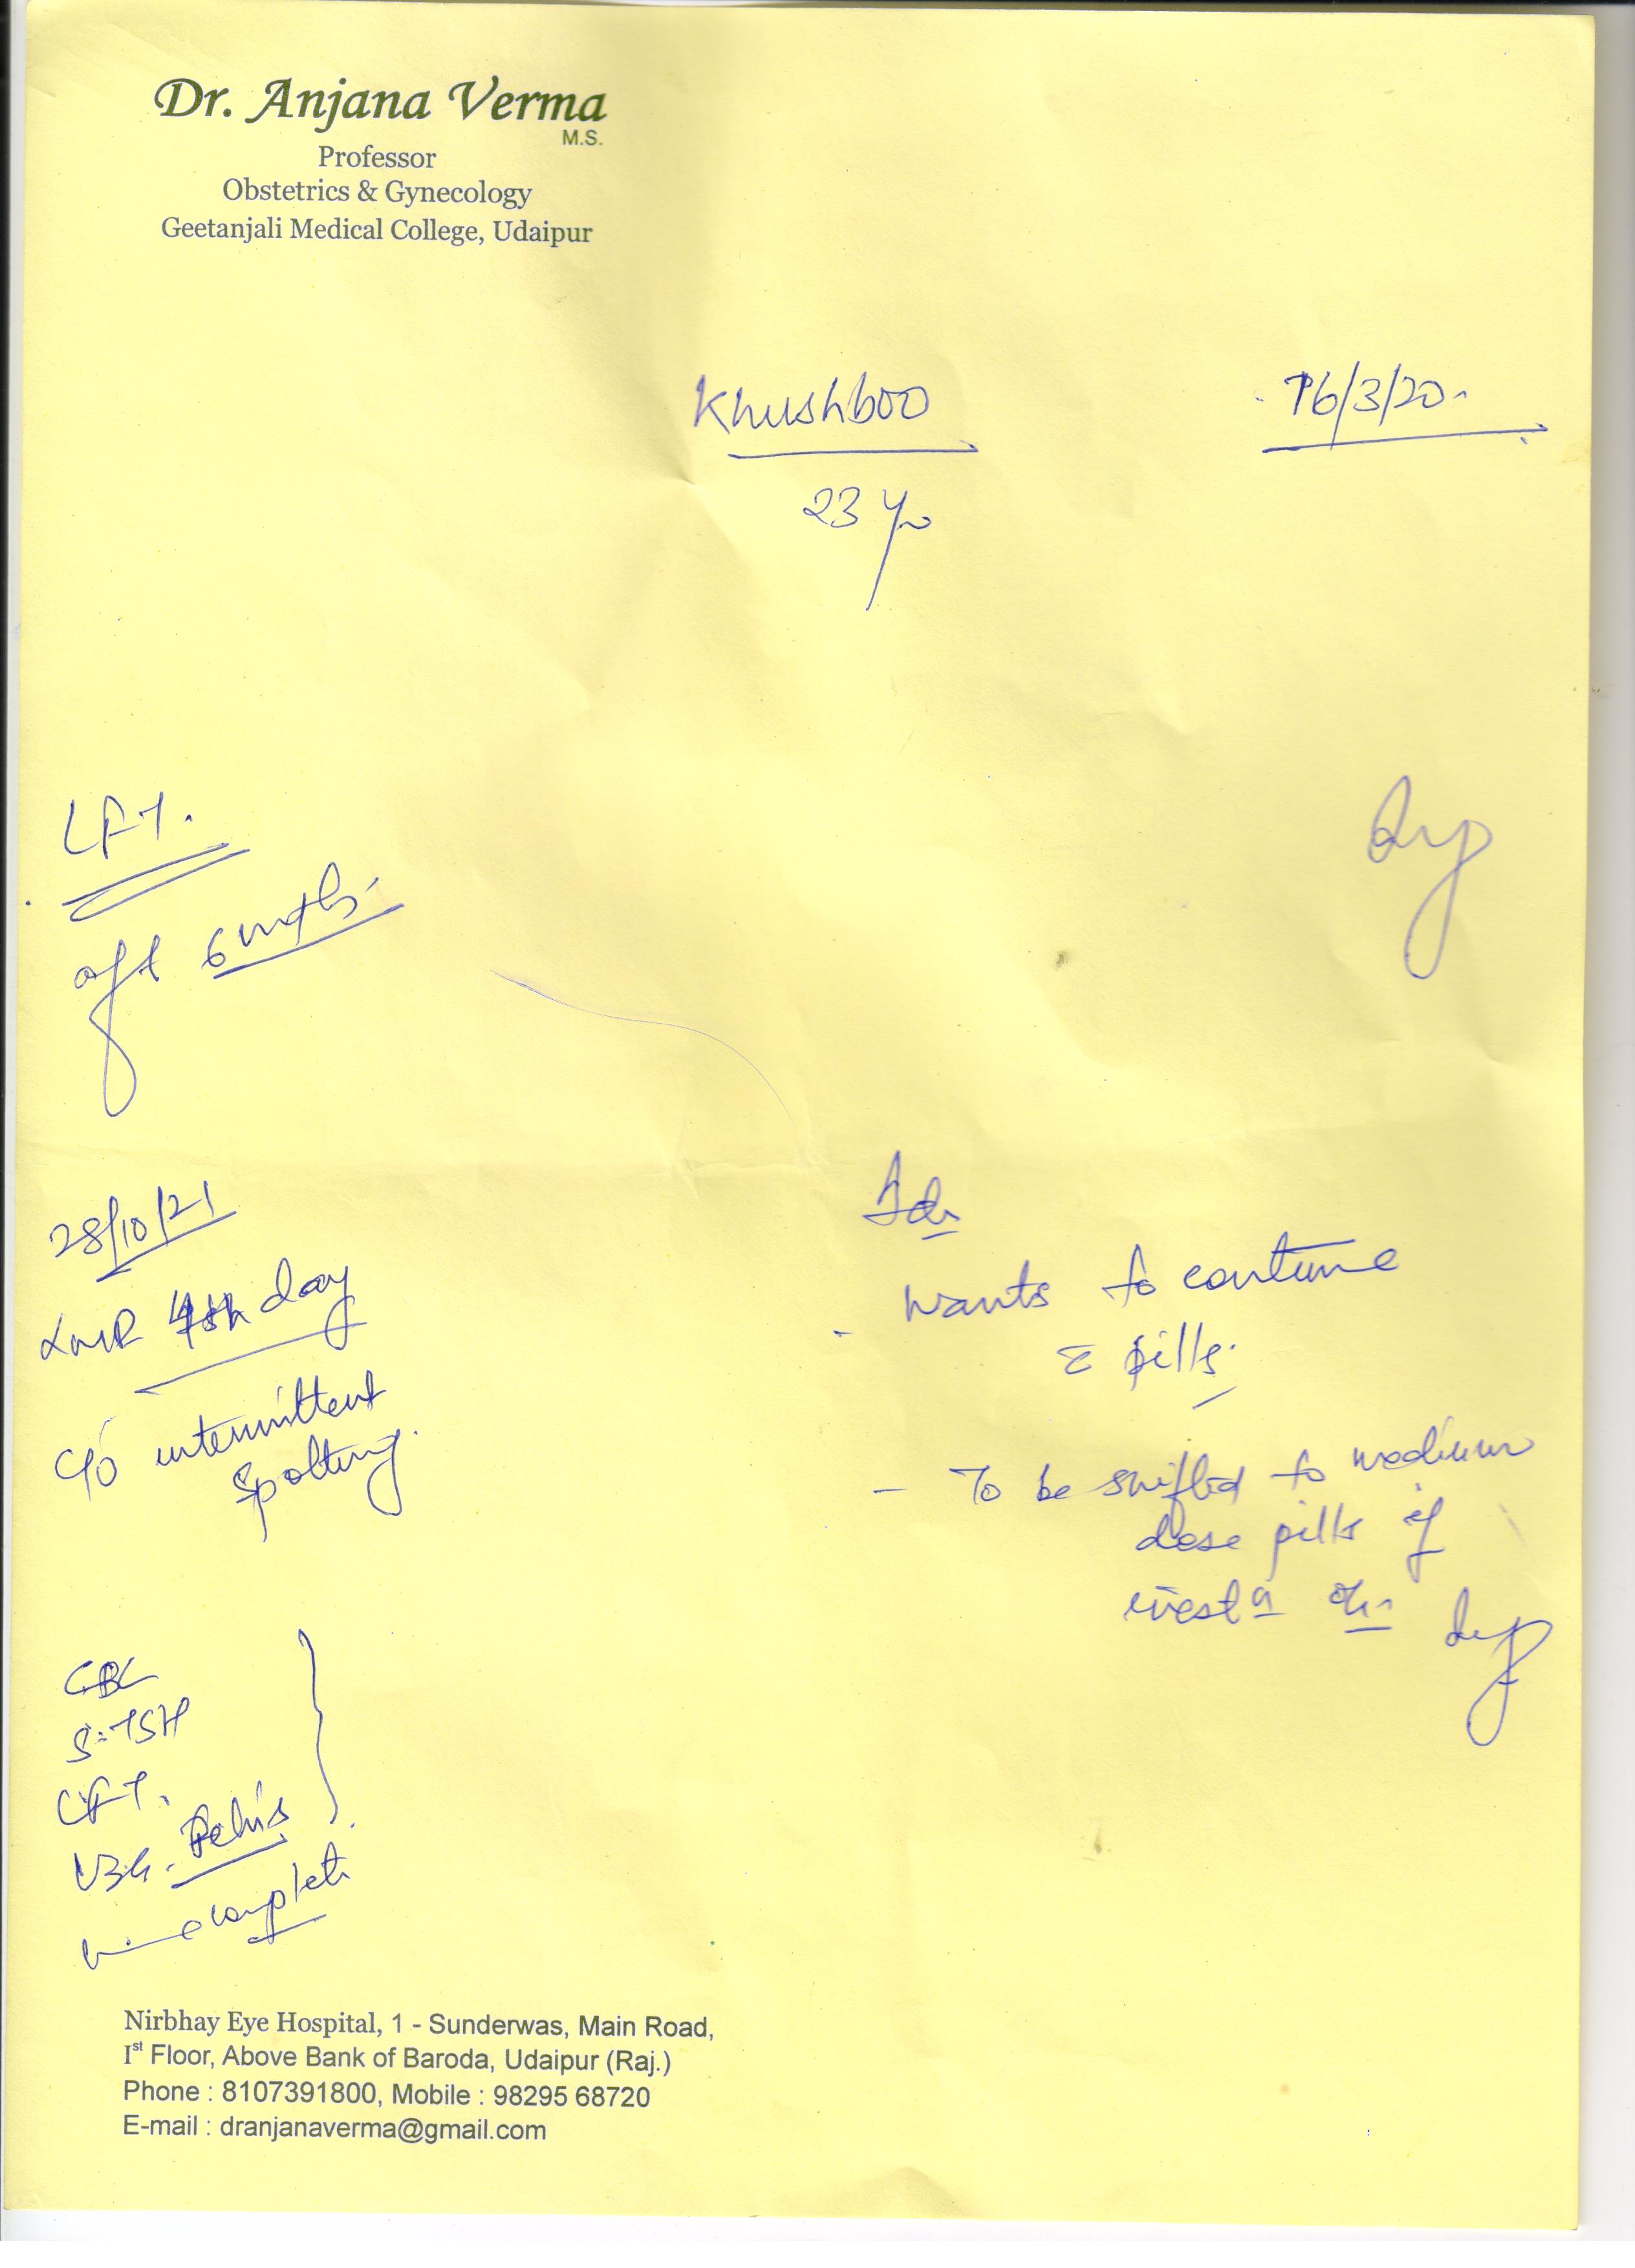 Dr. Anjana Verma
M.S.
Professor
Obstetrics & Gynecology
Geetanjali Medical College, Udaipur
Khushboo
16/3/20
23 y
LFT.
aft 6 mths.
28/10/21
LMP 4th day
C/o intermittent
spotting.
Adv
- wants to continue
c pills.
- To be shifted to medium
dose pills if
invest n ok
CBC
S. TSH
LFT.
USG. Pelvis
complete
Nirbhay Eye Hospital, 1 - Sunderwas, Main Road,
Ist Floor, Above Bank of Baroda, Udaipur (Raj.)
Phone : 8107391800, Mobile : 98295 68720
E-mail : dranjanaverma@gmail.com